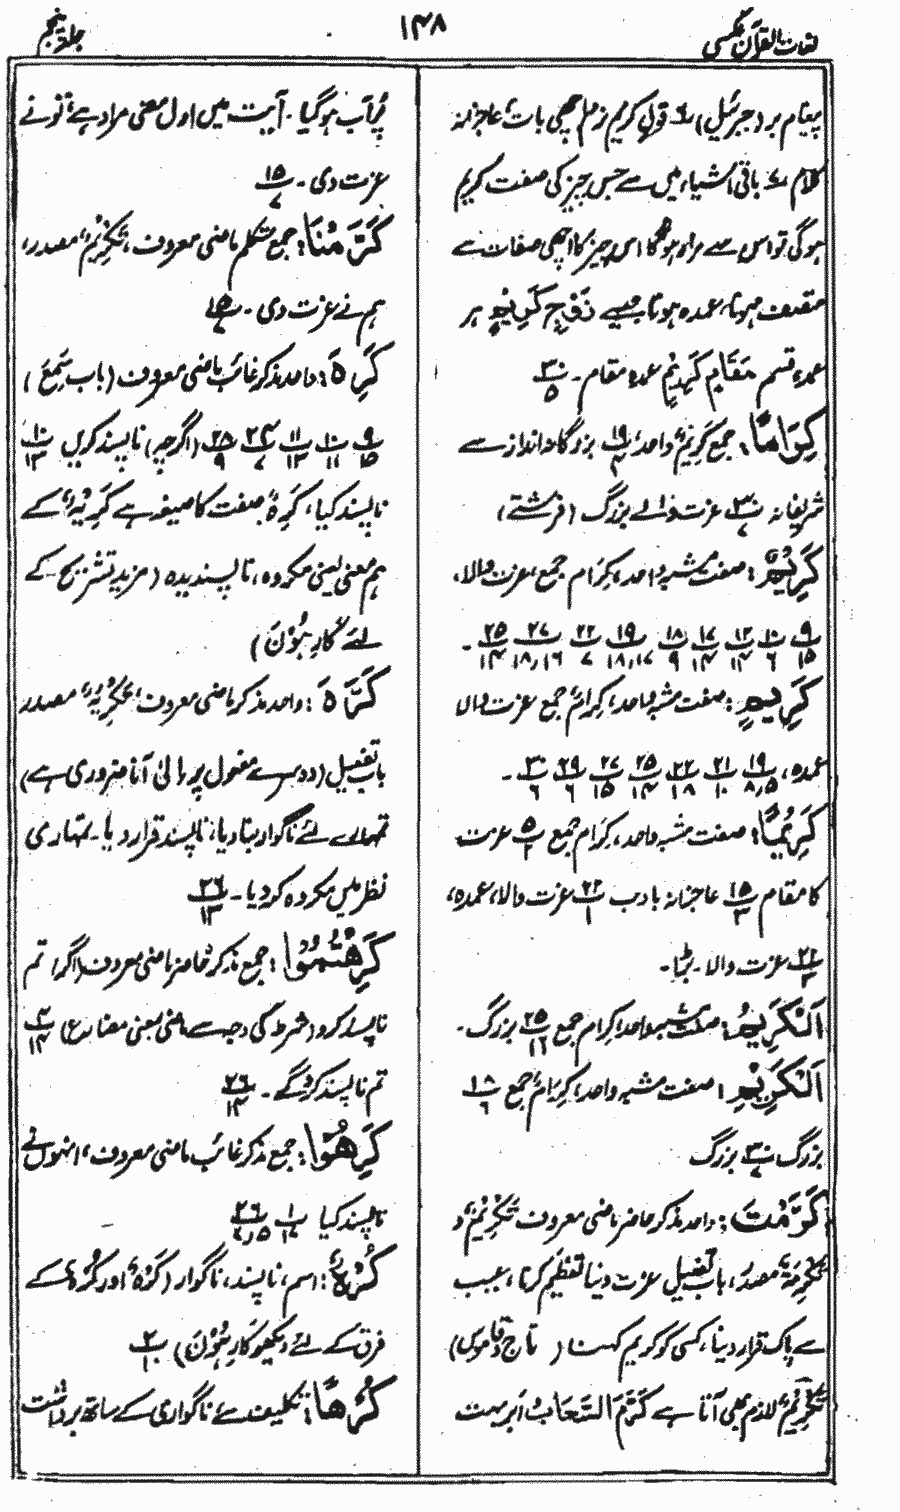 لغات القرآن عکسی
۱۴۸
جلد پنجم
پیغام بر (جبرئیل) ۶ قول کریم نرم اچھی بات، عاجزانہ
کلام ۷ باقی اشیاء میں سے جس چیز کی صفت کریم
ہوگی تو اس سے مراد ہوگا اس چیز کا اچھی صفات سے
متصف ہونا، عمدہ ہونا جیسے زَوْجٍ كَرِيْمٍ ہر
عمدہ قسم مَقَامٍ كَرِيْمٍ عمدہ مقام۔ ۳۰/۵
كِرَامًا: جمع كَرِيْمٌ واحد، ۱۹/۴ بزرگانہ انداز سے
شریفانہ ۳۰/۷ عزت والے بزرگ (فرشتے)
كَرِيْمٌ: صفت مشبہ واحد، كِرَام جمع، عزت والا،
۹/۱۵ ۱۰/۶ ۱۲/۱۴ ۱۷/۱۴ ۱۸/۹ ۱۹/۱۸،۱۷ ۲۲/۷ ۲۷/۱۸،۱۶ ۲۵/۱۴ ۔
كَرِيْمٍ: صفت مشبہ واحد، كِرَامٌ جمع عزت والا
عمدہ، ۱۹/۸،۵ ۲۱/۱۰ ۲۲/۱۸ ۲۵/۱۴ ۲۷/۱۵ ۲۹/۶ ۳۰/۶ ۔
كَرِيْمًا: صفت مشبہ واحد، كِرَام جمع ۵/۲ عزت
کا مقام ۱۵/۳ عاجزانہ باادب ۲۲/۱ عزت والا، عمدہ،
۲۲/۳ عزت والا۔ بڑا۔
اَلْكَرِيْمُ: صفت مشبہ واحد، كِرَام جمع ۲۵/۱۶ بزرگ۔
اَلْكَرِيْمِ: صفت مشبہ واحد، كِرَامٌ جمع ۱۸/۶
بزرگ ۳۰/۷ بزرگ
كَرَّمْتَ: واحد مذکر حاضر ماضی معروف تَكْرِيْمٌ و
تَكْرِمَةٌ مصدر، باب تفعیل عزت دینا تعظیم کرنا، عیب
سے پاک قرار دینا، کسی کو کریم کہنا (تاج و قاموس)
تَكْرِيْمٌ لازم بھی آتا ہے كَرَّمَ السَّحَابُ ابر بہت
پُر آب ہوگیا۔ آیت میں اول معنی مراد ہے، تو نے
عزت دی۔ ۱۵/۷
كَرَّمْنَا: جمع متکلم ماضی معروف، تَكْرِيْمٌ مصدر،
ہم نے عزت دی۔ ۱۵/۷
كَرِهَ: واحد مذکر غائب ماضی معروف (باب سَمِعَ)
۹/۱۵ ۱۰/۱۱ ۱۱/۱۲ ۲۴/۷ ۲۵/۹ (اگرچہ) ناپسند کریں ۱۰/۱۳
ناپسند کیا، كَرِهٌ صفت کا صیغہ ہے كَرِيْهٌ کے
ہم معنی یعنی مکروہ، ناپسندیدہ (مزید تشریح کے
لئے كَارِهُوْنَ)
كَرَّهَ: واحد مذکر ماضی معروف، تَكْرِيْهٌ مصدر
باب تفعیل (دوسرے مفعول پر الیٰ آنا ضروری ہے)
تمہارے لئے ناگوار بنا دیا، ناپسند قرار دیا۔ تمہاری
نظر میں مکروہ کر دیا۔ ۲۶/۱۳
كَرِهْتُمُوْا: جمع مذکر حاضر ماضی معروف (اگر) تم
ناپسند کرو (شرط کی وجہ سے ماضی بمعنی مضارع) ۴/۱۴
تم ناپسند کرو گے۔ ۲۶/۱۴
كَرِهُوْا: جمع مذکر غائب ماضی معروف، انہوں نے
ناپسند کیا ۱۰/۱۷ ۲۶/۷،۵
كُرْهٌ: اسم، ناپسند، ناگوار (كَرْهٌ اور كُرْهٌ کے
فرق کے لئے دیکھو كَارِهُوْنَ) ۲/۱۰
كُرْهًا: تکلیف سے ناگواری کے ساتھ برداشت